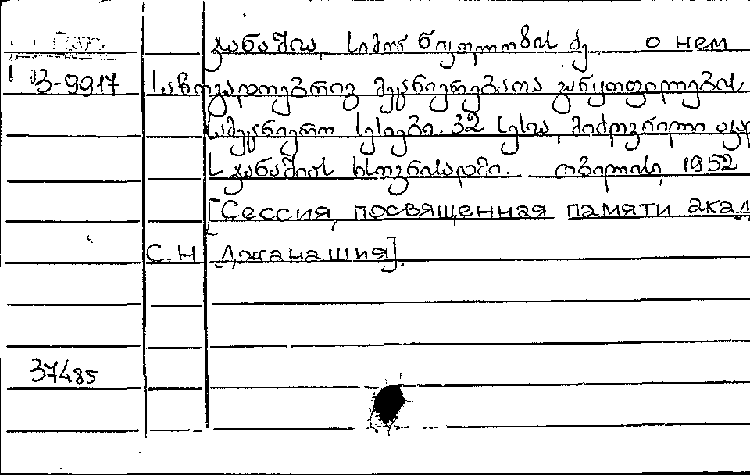 ჯანაშია, სიმონ ნიკოლოზის ძე. о нем
3-9917 საზოგადოებრივ მეცნიერებათა განყოფილების
სამეცნიერო სესიები. 32 სესია, მიძღვნილი აკად
ს. ჯანაშიას ხსოვნისადმი. თბილისი, 1952
[Сессия, посвященная памяти акад
С.Н Джанашия].
37485